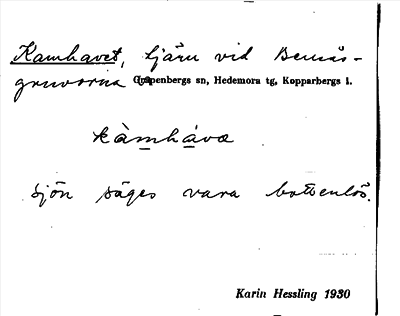 Kamhavet, tjärn vid Bemås-
gruvorna Grapenbergs sn, Hedemora tg, Kopparbergs l.
kàmháva
Sjön säges vara bottenlös.
Karin Hessling 1930